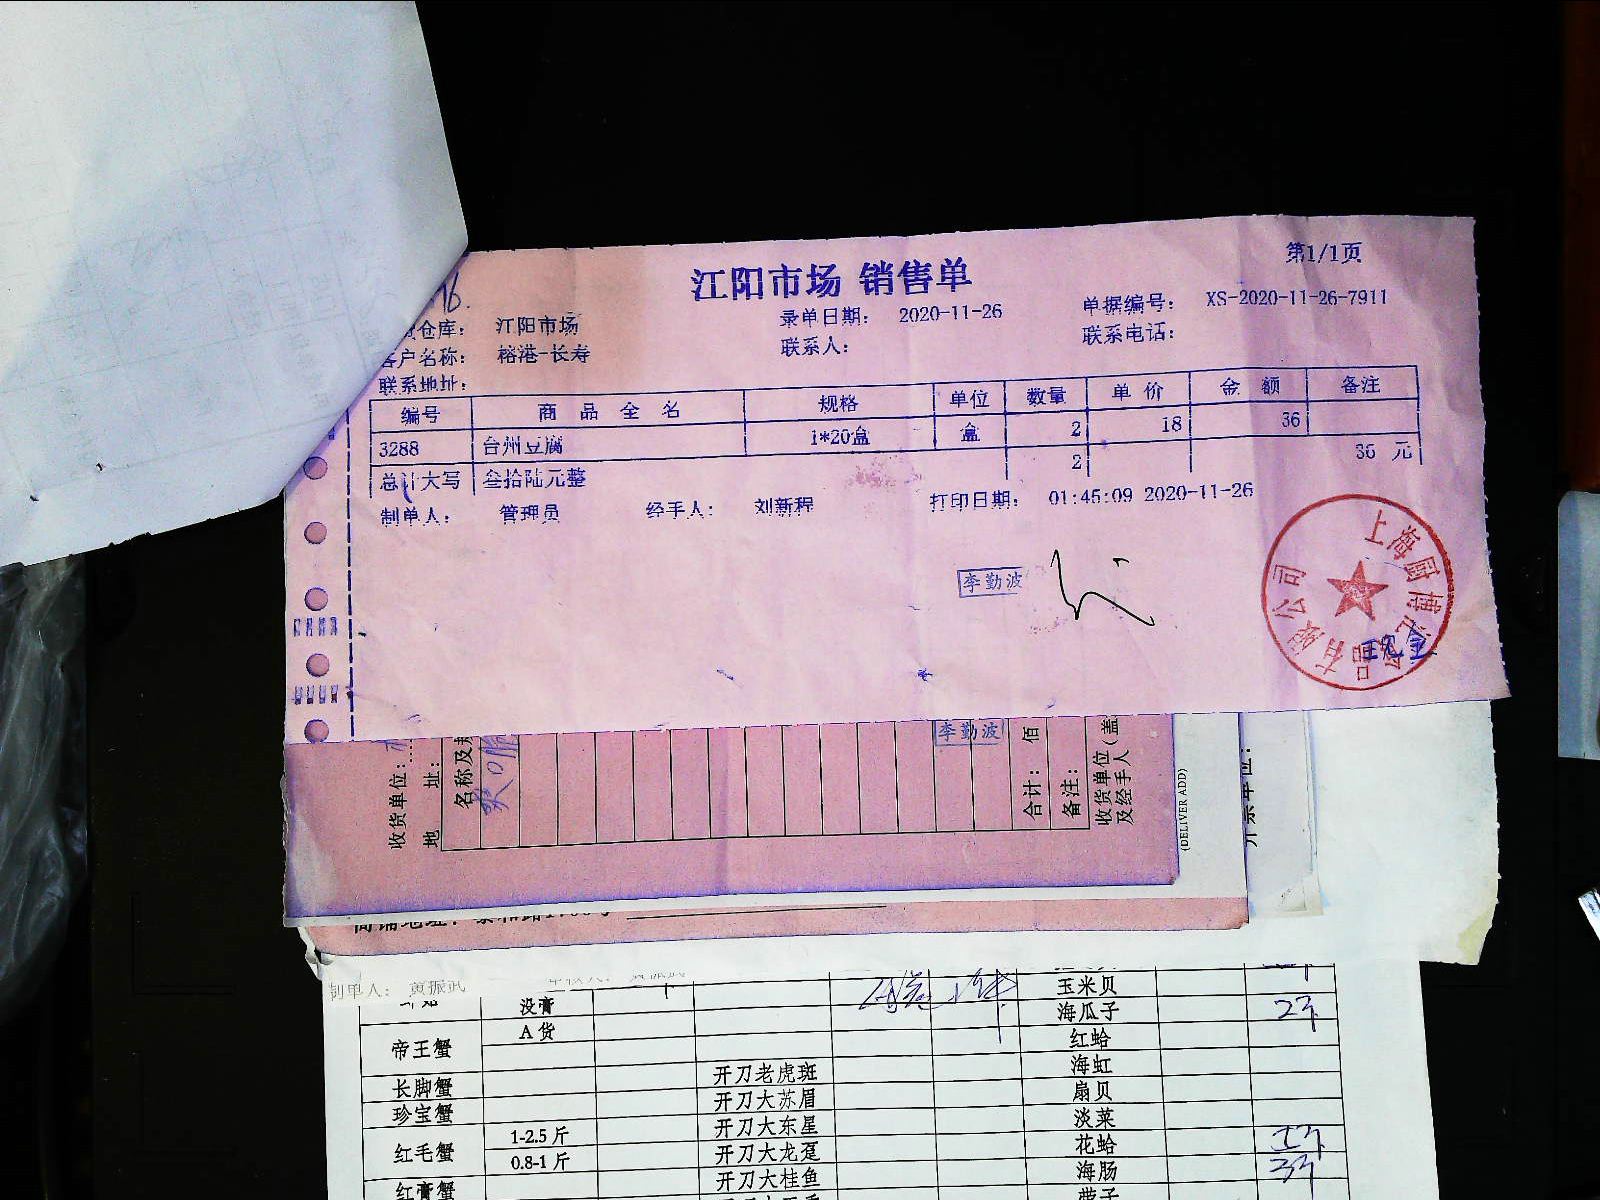 江阳市场 销售单
第1/1页
仓库： 江阳市场 录单日期： 2020-11-26 单据编号： XS-2020-11-26-7911
客户名称： 榕港-长寿 联系人： 联系电话：
联系地址：
编号 商品全名 规格 单位 数量 单价 金额 备注
3288 台州豆腐 1*20盒 盒 2 18 36
总计大写 叁拾陆元整 2 36 元
制单人： 管理员 经手人： 刘新程 打印日期： 01:45:09 2020-11-26
李勤波
上海厨博汇食品有限公司
李勤波
收货单位：
地 址：
名称及规
合计： 佰
备注：
收货单位（盖
及经手人
(DELIVER ADD)
制单人： 黄振武
没膏 玉米贝
帝王蟹 A 货 海瓜子 2斤
红蛤
长脚蟹 开刀老虎斑 海虹
珍宝蟹 开刀大苏眉 扇贝
红毛蟹 1-2.5 斤 开刀大东星 淡菜
0.8-1 斤 开刀大龙趸 花蛤
红膏蟹 开刀大桂鱼 海肠 3斤
带子